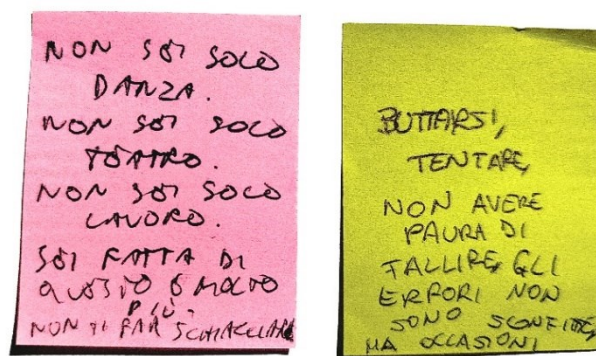 NON SEI SOLO
DANZA.
NON SEI SOLO
TEATRO.
NON SEI SOLO
LAVORO.
SEI FATTA DI
QUESTO E MOLTO
PIÙ.
NON TI FAR SCHIACCIARE
BUTTARSI,
TENTARE,
NON AVERE
PAURA DI
FALLIRE, GLI
ERRORI NON
SONO SCONFITTE,
MA OCCASIONI